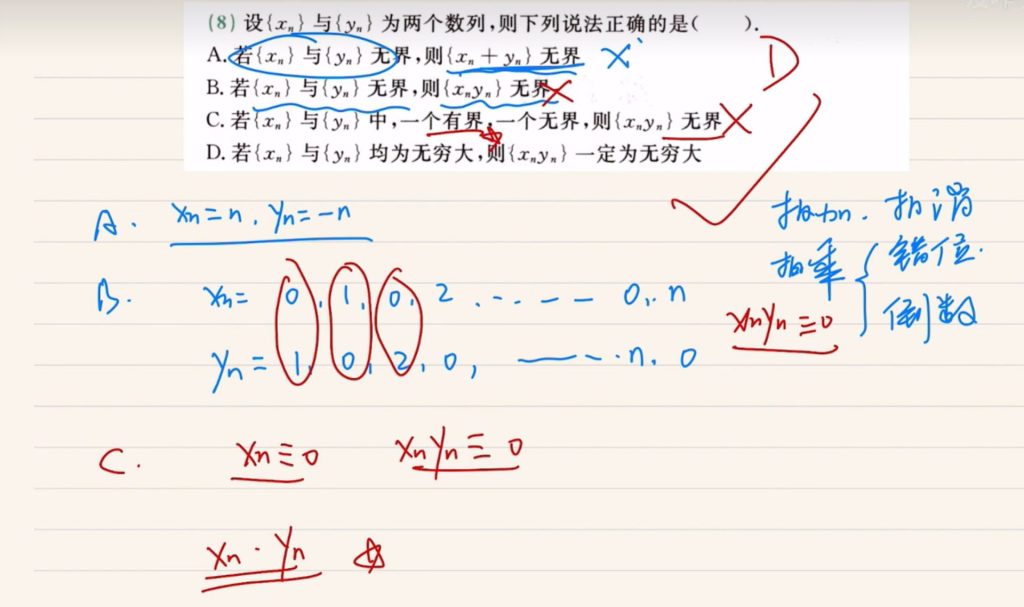 (8) 设{xₙ}与{yₙ}为两个数列,则下列说法正确的是(  ).
A.若{xₙ}与{yₙ}无界,则{xₙ+yₙ}无界 ×
D
B.若{xₙ}与{yₙ}无界,则{xₙyₙ}无界 ×
C.若{xₙ}与{yₙ}中,一个有界,一个无界,则{xₙyₙ}无界 ×
D.若{xₙ}与{yₙ}均为无穷大,则{xₙyₙ}一定为无穷大
✓
A. xₙ=n. yₙ=-n
相加. 相消
相乘 { 错位.
倒数
B. xₙ= 0, 1, 0, 2 ..---- 0, n
xₙyₙ≡0
yₙ= 1, 0, 2, 0, ——--·n, 0
C. xₙ≡0 xₙyₙ≡0
xₙ·yₙ ☆